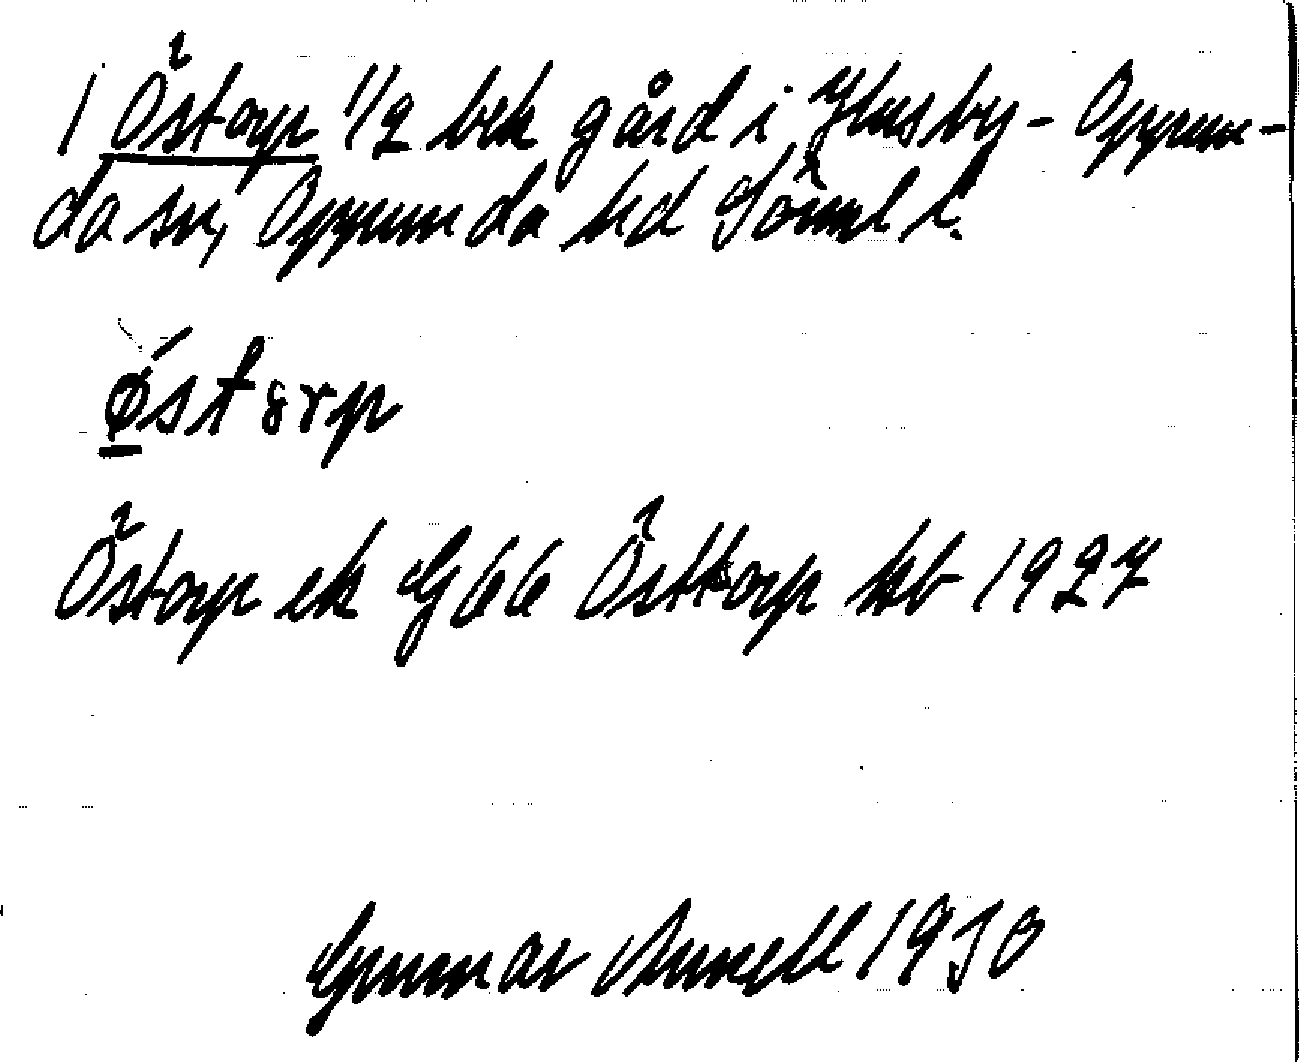 1 Östorp 1/2 bek gård i Husby-Oppun-
da sn, Oppunda hd Söml l.
Østørp
Östorp ek G66 Östtorp kb 1927
Gunnar 1930